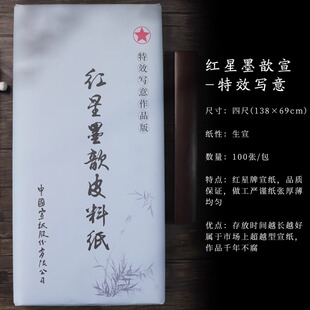 特效写意作品版
红星墨歆皮料纸
中國宣纸股份有限公司
红星墨歆宣
-特效写意
尺寸：四尺(138×69cm)
纸性：生宣
数量：100张/包
特点：红星牌宣纸，品质
保证，做工严谨纸张厚薄
均匀
优点：存放时间越长越好
属于市场上超越型宣纸，
作品千年不腐